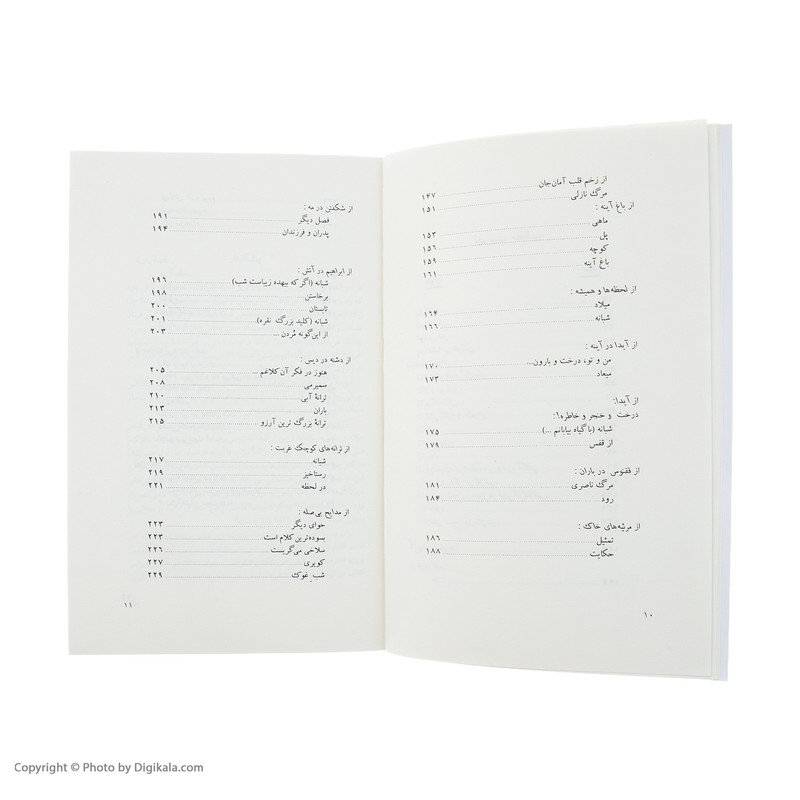 از زخم قلب آمان‌جان
مرگ نازلی ۱۴۷
از باغ آینه : ۱۵۱
ماهی
پل ۱۵۳
کوچه ۱۵۶
باغ آینه ۱۵۹
۱۶۱
از لحظه‌ها و همیشه :
میلاد ۱۶۴
شبانه ۱۶۶
از آیدا در آینه :
من و تو، درخت و بارون... ۱۷۰
میعاد ۱۷۳
از آیدا:
درخت و خنجر و خاطره!:
شبانه (با گیاه بیابانم ...) ۱۷۵
از قفس ۱۷۹
از ققنوس در باران :
مرگ ناصری ۱۸۱
رود ۱۸۴
از مرثیه‌های خاک :
تمثیل ۱۸۶
حکایت ۱۸۸
۱۰
از شکفتن در مه :
فصل دیگر ۱۹۱
پدران و فرزندان ۱۹۴
از ابراهیم در آتش :
شبانه (اگر که بیهده زیباست شب) ۱۹۶
برخاستن ۱۹۸
تابستان ۲۰۰
شبانه (کلید بزرگ نقره) ۲۰۱
از این‌گونه مُردن ... ۲۰۳
از دشنه در دیس :
هنوز در فکر آن کلاغم ... ۲۰۵
سمیرمی ۲۰۸
ترانهٔ آبی ۲۱۰
باران ۲۱۳
ترانهٔ بزرگ ترین آرزو ۲۱۵
از ترانه‌های کوچک غربت :
شبانه ۲۱۷
رستاخیز ۲۱۹
در لحظه ۲۲۱
از مدایح بی‌صله :
حوای دیگر ۲۲۳
بسوده‌ترین کلام است ۲۲۳
سلاخی می‌گریست ۲۲۶
کویری ۲۲۷
شب ِ غوک ۲۲۹
۱۱
Copyright © Photo by Digikala.com